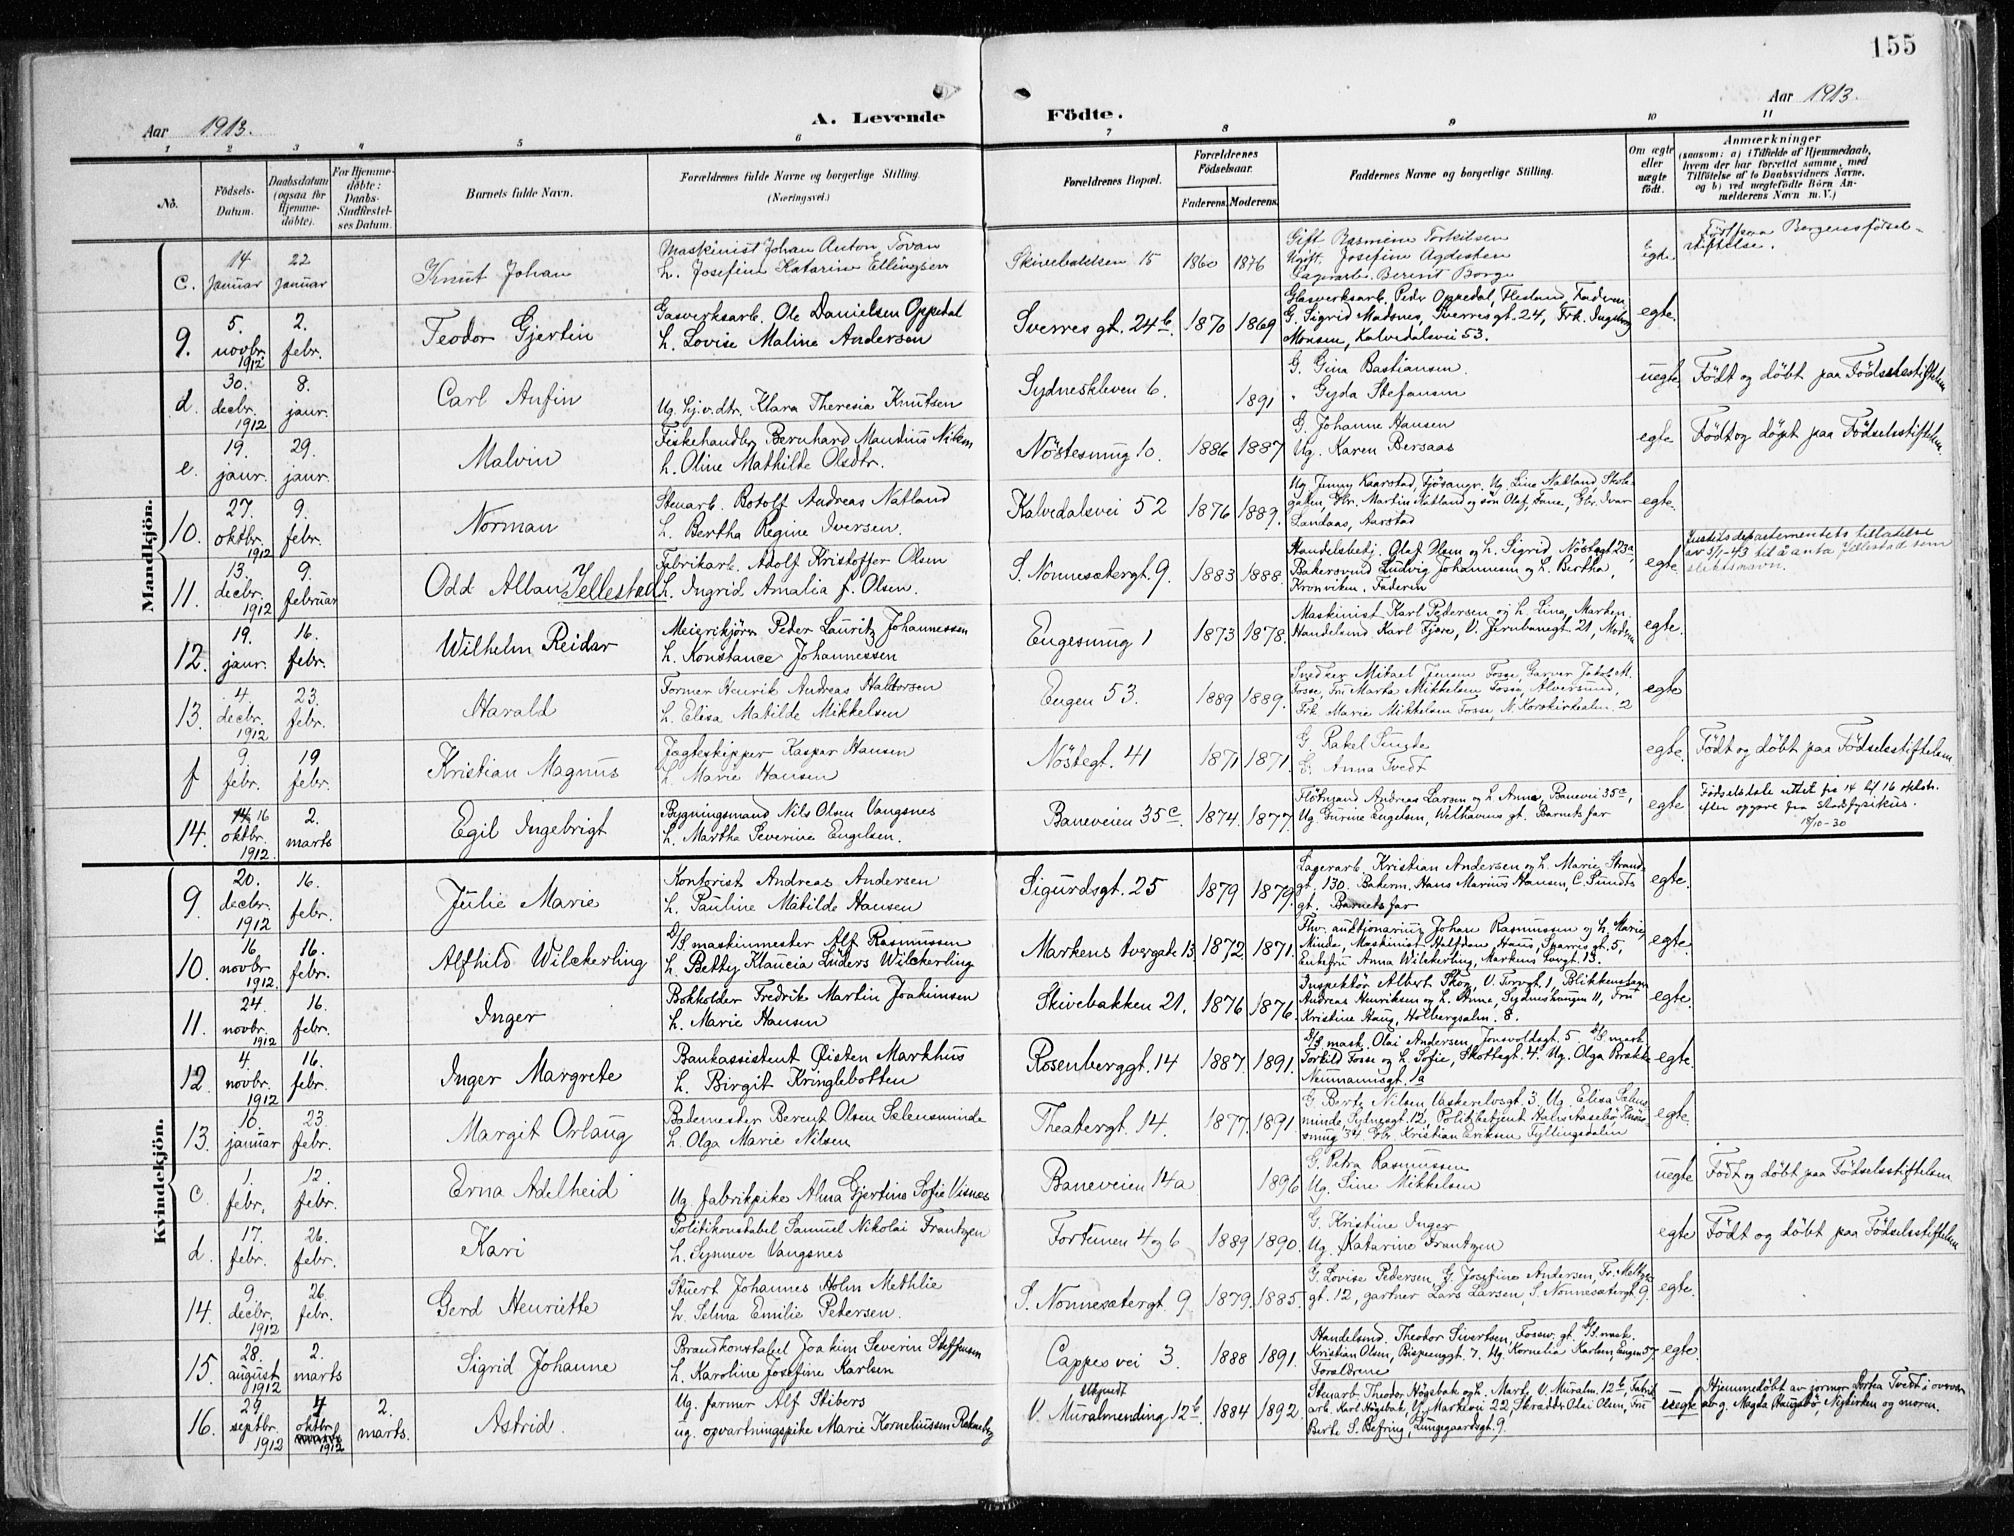 155
Aar 1913.
A. Levende Födte.
Aar 1913.
1 2 3 4 5 6 7 8 9 10 11
No.
Födsels-Datum.
Daabsdatum (ogsaa for Hjemme-döbte).
For Hjemme-döbte: Daabs-Stadfæstel-ses Datum.
Barnets fulde Navn.
Forældrenes fulde Navne og borgerlige Stilling. (Næringsvei.)
Forældrenes Bopæl.
Forældrenes Födselsaar.
Faderens. Moderens.
Faddernes Navne og borgerlige Stilling.
Om ægte eller uægte födt.
Anmærkninger
(saasom: a) i Tilfælde af Hjemmedaab, hvem der har forrettet samme, med Tilföielse af to Daabsvidners Navne, og b) ved uægtefödte Börn An-melderens Navn m. V.)
Mandkjön.
c. 14 Januar 22 Januar Knut Johan Maskinist Johan Anton Tovan
h. Josefine Katarine Ellingsen Skivebakken 15 1860 1876 Gift Rasmine Torkilsen
Ugift. Josefine Agdesten
Lagerarb. Berent Borge Egte Født paa Bergens fødsel-stiftelse.
9. 5. novbr. 1912 2. febr. Teodor Gjertin Gasverksarb. Ole Danielsen Oppedal
h. Lovise Maline Andersen Sverres gt. 24b 1870 1869 Glasverksarb. Peder Oppedal, Flesland, Faderen,
G. Sigrid Madsnes, Sverresgt. 24, Frk. Ingeborg
Monsen, Kalvedalsvei 53. egte.
d. 30. decbr. 1912 8. jaur. Carl Anfin Ug. Klara Theresia Knutsen Sydneskleven 6. 1891 G. Gina Bastiansen.
" Gyda Stefansen uegte Födt og döbt paa Födselsstiftelsen
e. 19. jaur. 29. jaur. Malvin Fiskehandler Bernhard Mandius Nilsen
h. Oline Mathilde Olsdtr. Nöstesmug 10. 1886 1887 G. Johanne Hansen
Ug. Karen Bersaas egte Födt og döpt paa Födselsstiftelsen.
10. 27. oktbr. 1912 9. febr. Norman Stenarb. Botolf Andreas Natland
h. Bertha Regine Iversen. Kalvedalsvei 52 1876 1889. Ug Jenny Kaarstad, Fjösangr. Ug. Line Natland Skole-
gaten, Gbr. Martin Natland og sön Olaf, Fane, Gbr. Ivar
Landaas, Aarstad egte.
11. 13. decbr. 1912 9. februar Odd Alban Jellestad Fabrikarb. Adolf Kristoffer Olsen
h. Ingrid Amalia f. Olsen. S. Nonnesætergt. 9. 1883 1888. Handelsbetj. Olaf Olsen og h. Sigrid, Nöstegt 23a,
Bakersvend Ludvig Johannesen og h. Bertha,
Kronviken. Faderen egte. Justitsdepartementets tillatelse
av 5/1-43 til å anta Jellestad som
slektsnavn.
12. 19. jaur. 16. febr. Wilhelm Reidar Meierikjörer Peder Lauritz Johannessen
h. Konstance Johannessen Engesmug 1 1873 1878. Maskinist Karl Pedersen og h. Lina, Marken
Handelsmd Karl Fjære, V. Jernbanegt 21, Moderen egte.
13. 4. decbr. 1912 23. febr. Harald Former Henrik Andreas Haldorsen
h. Elisa Matilde Mikkelsen Engen 53. 1889 1889. Snedker Mikael Jensen Fosse, Garver Jakob M.
Fosse, Fru Marta Mikkelsen Fosse, Alversund,
Frk. Marie Mikkelsen Fosse, N. Korskirkealm. 2 egte
f 9. febr. 19 febr. Kristian Magnus Jagteskipper Kaspar Hansen
h. Marie Hansen Nöstegt. 41 1871 1871 G. Rakel
G. Anna Tvedt egte. Födt og döbt paa Födselsstiftelsen.
14. 14 16 oktbr. 1912. 2. marts Egil Ingebrigt Bygningsmand Nils Olsen Vangsnes
h. Martha Severine Engelsen. Baneveien 35c. 1874. 1877. Flötmand Andreas Larsen og h. Anna, Banevei 35c,
Ug Gurine Engelsen, Welhavens gt. Barnets far egte Födselsdale rettet fra 14 til 16 oktbr.
efter opgave fra stadsfysikus.
18/10-30
Kvindekjön.
9. 20. decbr. 1912 16. febr. Julie Marie Kontorist Andreas Andersen
h. Pauline Matilde Hansen Sigurdsgt. 25 1879 1879. Lagerarb. Kristian Andersen og h. Marie, Strand-
gt. 130. Bakerm. Hans Marius Hansen, C. Sundts
gt. Barnets far egte.
10. 16 novbr. 1912 16. febr. Alfhild Wilckerling D/S maskinmester Alf Rasmussen
h. Betty Klaucia Lüders Wilckerling Markens tvergate 13 1872. 1871. Fhv. auktjonarius Johan Rasmussen og h. Marie,
Minde, Maskinist Halfdan Haus, Sverris gt. 5,
Enkefru Anna Wilckerling, Markens tvergt. 13. egte.
11. 24 novbr. 1912 16. febr. Inger Bokholder Fredrik Martin Joakimsen
h. Marie Hansen Skivebakken 21. 1876 1876. Inspektör Albert Skog, V. Torvgt. 1, Blikkenslager
Andreas Henriksen og h. Anne, Sydneshaugen 11, Fru
Kristine Haus, Holbergsalm. 8. egte.
12. 4. novbr. 1912 16. febr. Inger Margrete Bankassistent Øisten Markhus
h. Birgit Kringlebotten Rosenberggt. 14 1887. 1891. D/S mask. Olai Andersen, Jonsvoldsgt. 5. D/S mask.
Torkild Fosse og h. Sofie, Skottegt. 4. Ug. Olga Brekke
Neumannsgt. 1a egte.
13. 10. januar 23. febr. Margit Orlaug Bademester Berent Olsen Sælensminde
h. Olga Marie Nilsen Theatergt. 14. 1877. 1891 G. Berte Nilsen Vaskerelvsgt. 3. Ug. Elisa Sælens-
minde, Sydnesgt. 12, Politibetjent Halvr Aasebø,
smug 34. Gbr. Kristian Eriksen Fyllingsdalen egte.
c 1. febr. 12. febr. Erna Adelheid Ug. fabrikpike Alma Gjertine Sofie Visnes Baneveien 14a 1896 G. Petra Rasmussen
Ug. Sine Mikkelsen uegte Födt og döbt paa Födselsstiftelsen.
d. 17. febr. 26. febr. Kari Politikonstabel Samuel Nikolai Frantzen
h. Synneve Vangsnes Fortunen 4 og 6 1889 1890. G. Kristine Inger
Ug. Katarine Frantzen egte Födt og döbt paa Födselsstiftelsen
14. 9. decbr. 1912 26. febr. Gerd Henriette Stuert Johannes Holm Methlie
h. Selma Emilie Petersen. S. Nonnesætergt. 9 1879. 1885. G. Lovise Pedersen, G. Josefine Andersen, Fr. Meltzers
gt. 12, gartner Lars Larsen, S. Nonnesætergt. 9. egte.
15. 28. august 1912 2. marts Sigrid Johanne Brandkonstabel Joakim Severin Steffensen
h. Karoline Josefine Karlsen Cappes vei 3. 1888 1891. Handelsmd. Theodor Sivertsen, Fossw. gt. D/S mask.
Kristian Olsen, Bispenggt. 7. Ug. Kornelia Karlsen, Engen 57
Forældrene egte.
16. 29. septbr. 1912 4 oktbr. 1912 2. marts. Astrid. Ug. former Alf Stibers
ug. opvartningspike Marie Korneliussen Rabneberg ubkjendt
V. Muralmending 12b. 1884 1892. Stenarb. Theodor Högsbak og h. Marta, V. Muralm. 12b, Fabrik
arb. Karl Högsbak V. Markevei 22 Skrædder Olai Olsen, Fru
Berte S. Befring, Lungegaardsgt. 9. uegte Hjemmedöbt av jormor Dortea Tvedt i overvær
av g. Magda Haugsbö, Nykirken og moren.